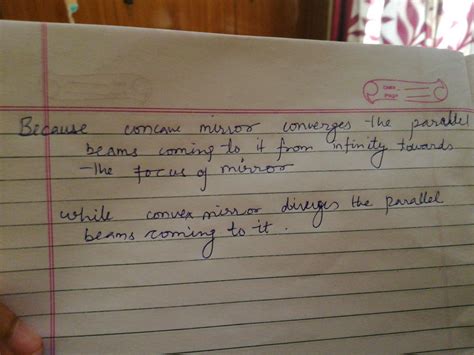 Because concave mirror converges the parallel
beams coming to it from infinity towards
the focus of mirror
while convex mirror diverges the parallel
beams coming to it.